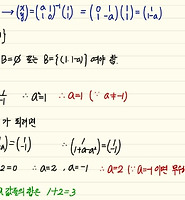 → (x y) = (a 1 1 0)⁻¹ (1 1) = (0 1 1 -a)(1 1) = (1 1-a)
B=∅ 또는 B={(1, 1-a)} 여야 함.
∴ a²=1 ∴ a=1 (∵ a≠-1)
가 되려면
∴ (1 1+a-a²) = (1 -1)
-2=0 ∴ a=2, a=-1 ∴ a=2 (∵ a=-1 이면
a 값들의 합은 1+2=3